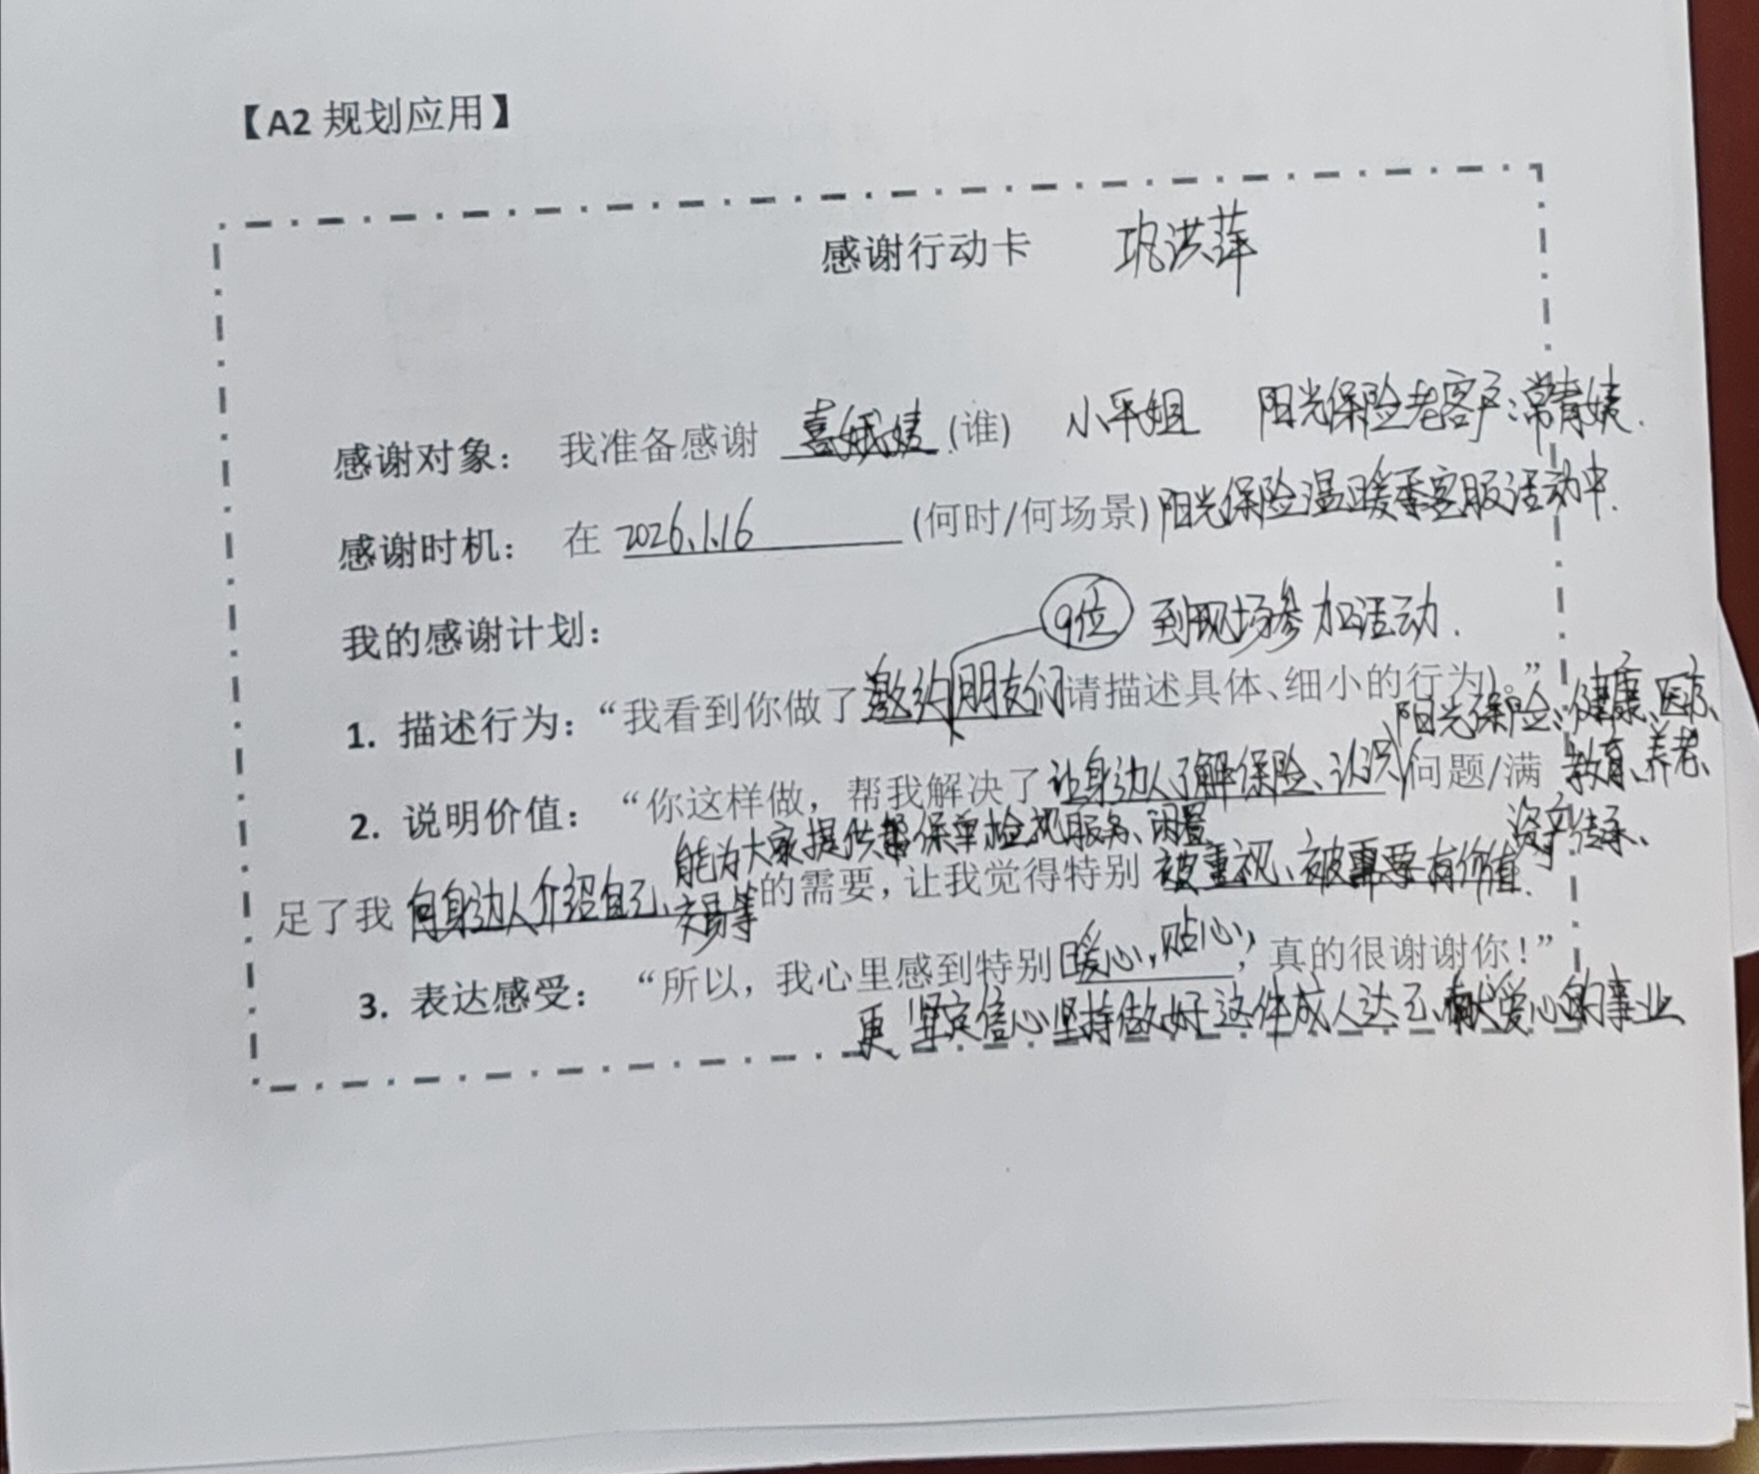 【A2 规划应用】
感谢行动卡 巩洪萍
感谢对象： 我准备感谢 喜娥姨 (谁) 小平姐 阳光保险老客户：常青姨.
感谢时机： 在 2026.1.16 (何时/何场景) 阳光保险温暖季客服活动中.
我的感谢计划： 9位 到现场参加活动.
1. 描述行为：“我看到你做了邀约朋友们请描述具体、细小的行为)。”
阳光保险、健康、医疗、
2. 说明价值：“你这样做，帮我解决了 让身边人了解保险、认识 问题/满 教育、养老、
能为大家提供 保单检视服务、闲置 资产传承、
足了我 向身边人介绍自己、交易等 的需要，让我觉得特别 被重视、被需要 有价值.
3. 表达感受：“所以，我心里感到特别暖心，贴心，，真的很谢谢你！”
更 坚定信心坚持做好这件成人达己、献爱心的事业